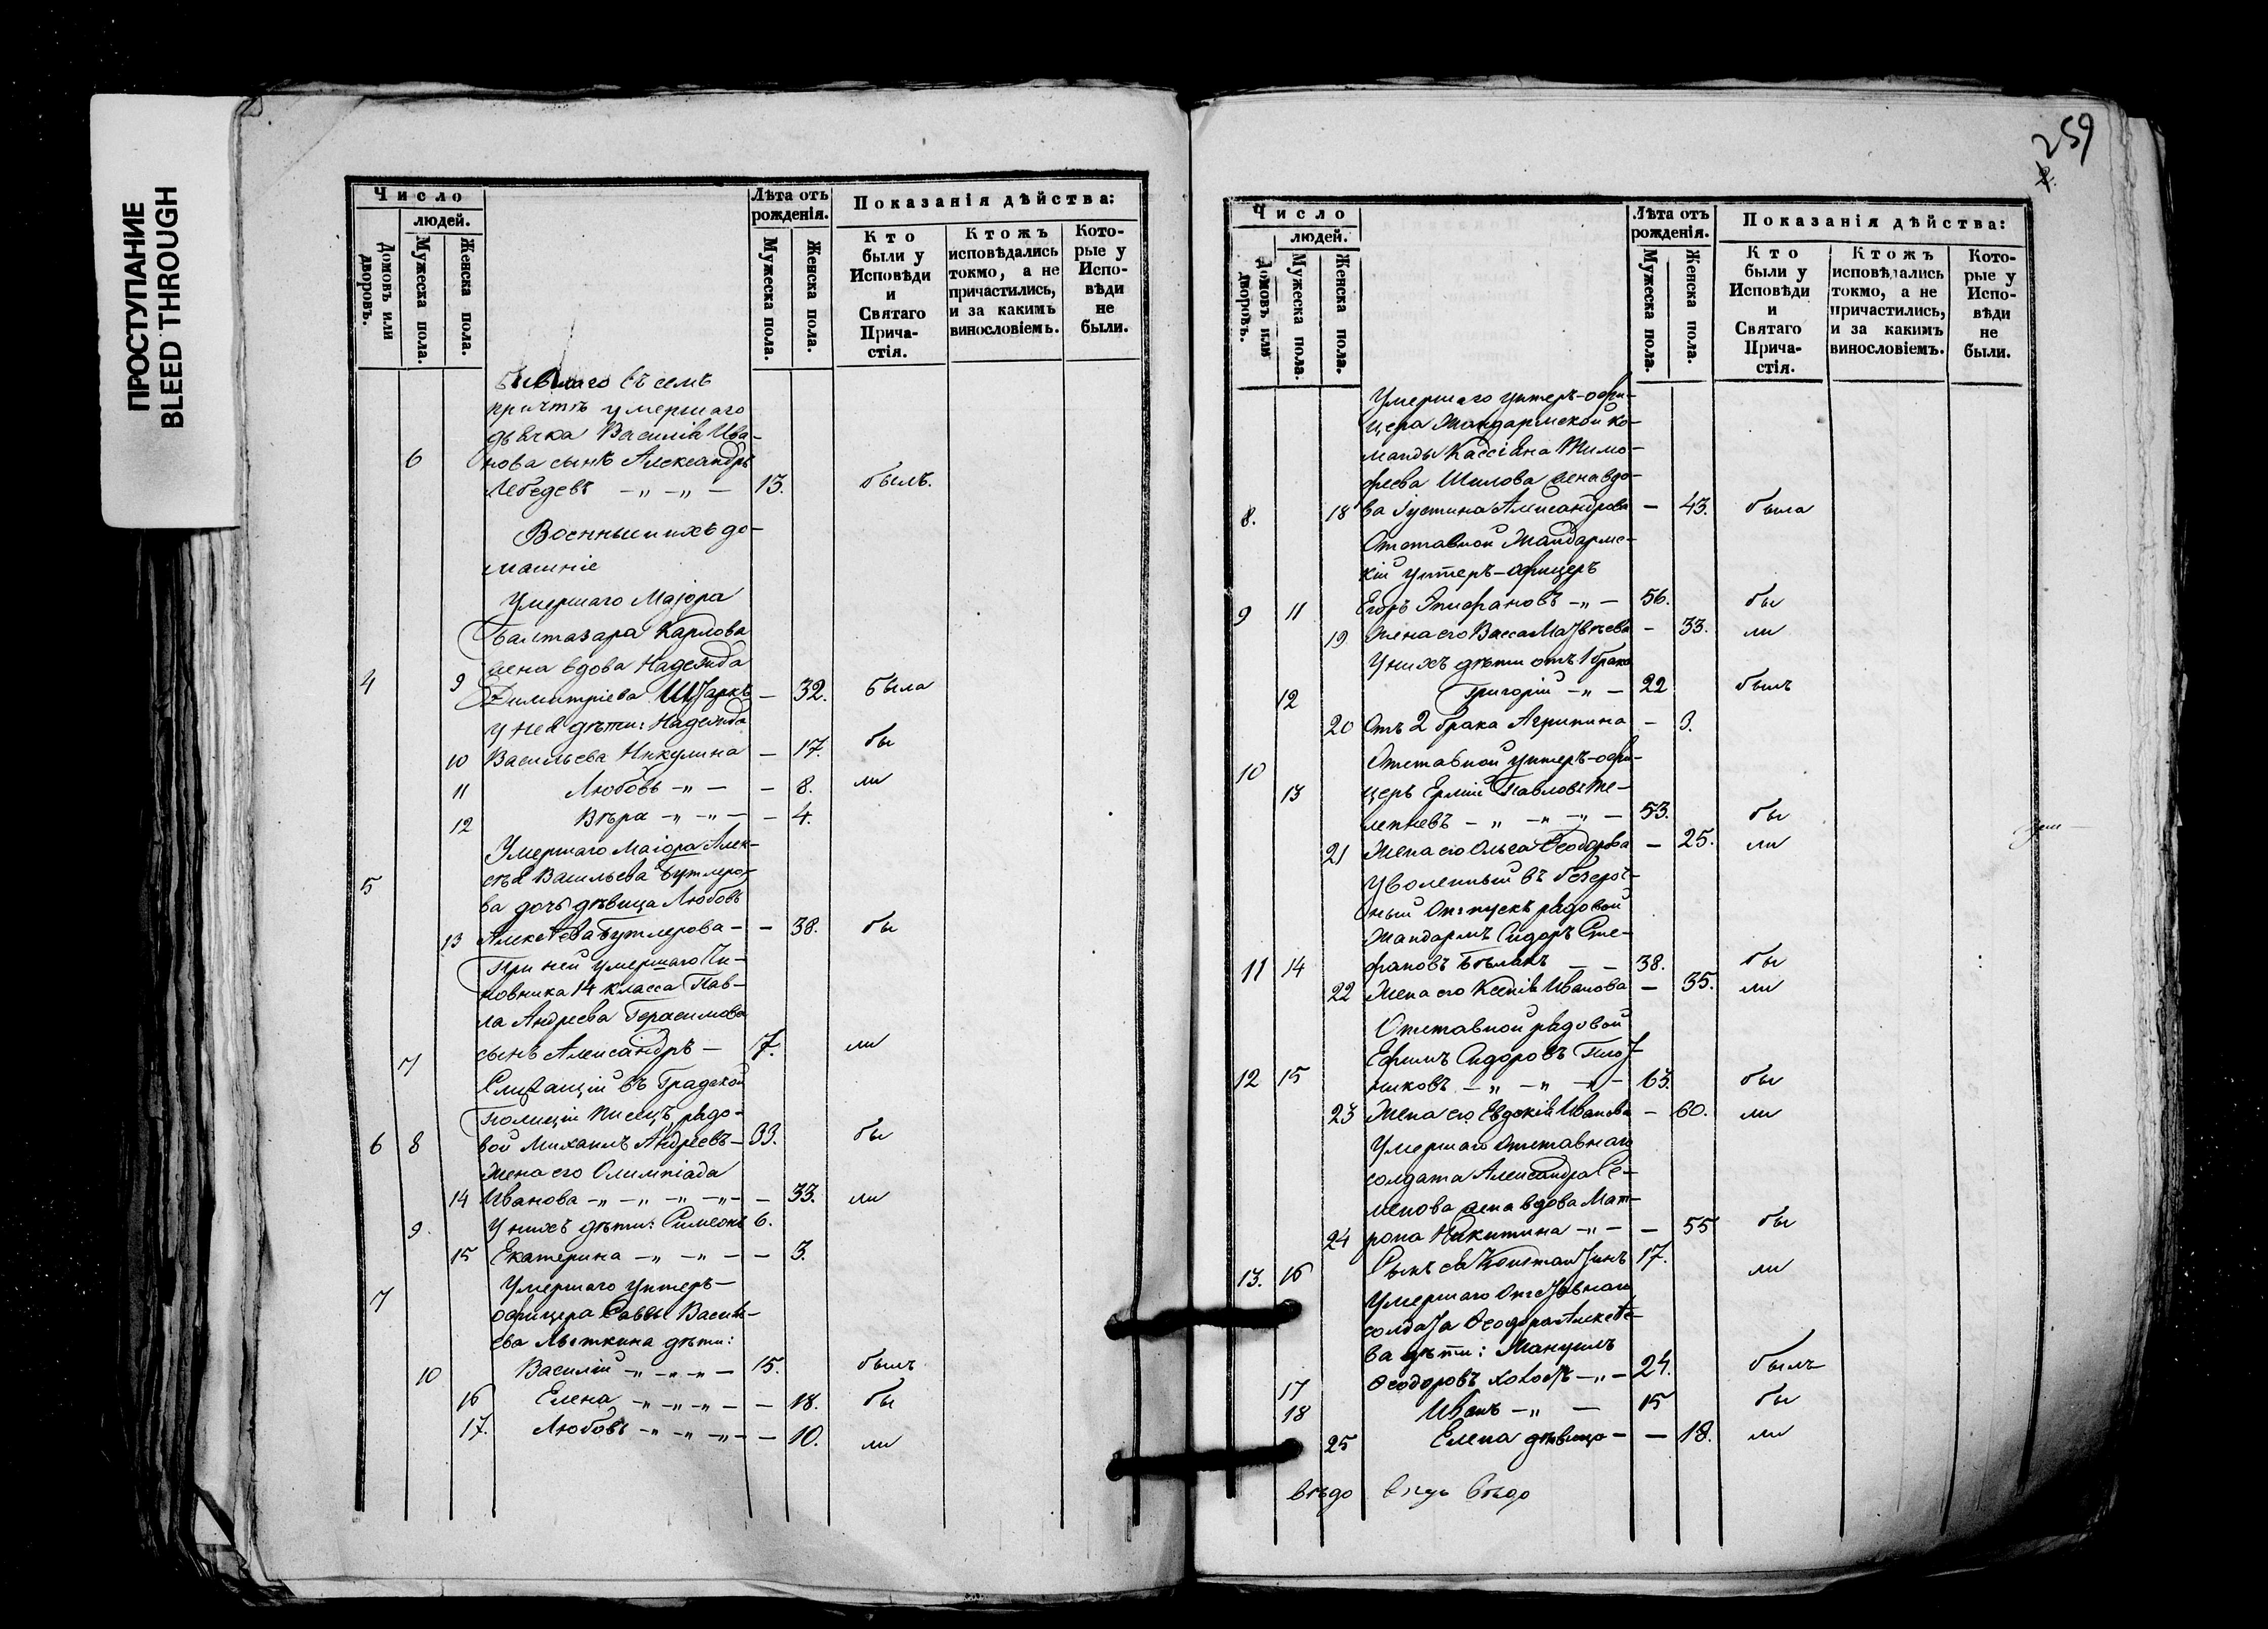 ПРОСТУПАНИЕ
BLEED THROUGH
Число
людей.
Домовъ или дворовъ.
Мужеска пола.
Женска пола.
Лѣта отъ рожденія.
Мужеска пола.
Женска пола.
Показанія дѣйства:
Кто были у Исповѣди и Святаго Прича-стія.
Ктожъ исповѣдались токмо, а не причастились, и за какимъ винословіемъ.
Кото-рые у Испо-вѣди не были.
бывшаго въ семъ
причтѣ умершаго
дьячка Василія Ива-
6 нова сынъ Александръ
Лебедевъ — „ — „ — 13. былъ.
Военные и ихъ до-
машніе
Умершаго Маіора
Балтазара Карлова
жена вдова Надежда
4 9 Димитріева Штаркъ — 32. была
у нея дѣти: Надежда
10 Васильева Никулина — 17. бы
11 Любовь — „ — — 8. ли
12 Вѣра — „ — „ — — 4.
Умершаго Маіора Алек-
5 сѣя Васильева Бутлеро-
ва дочь дѣвица Любовь
13 Алексѣева Бутлерова — — 38. бы
При ней умершаго Чи-
новника 14 класса Пав-
ла Андреева Герасимова
7 сынъ Александръ — 7. ли
Служащій въ Градской
Полиціи Писецъ рядо-
6 8 вой Михаилъ Андреевъ — 33. бы
Жена его Олимпіада
14 Иванова — „ — „ — „ — „ — — 33. ли
9. У нихъ дѣти: Симеонъ 6.
15 Екатерина — „ — „ — — 3.
7 Умершаго унтеръ-
офицера Саввы Василь-
ева Лыткина дѣти:
10 Василій — „ — „ — 15. былъ
16 Елена — „ — „ — „ — — 18. бы
17. Любовь — „ — „ — „ — — 10. ли
259
Число
людей.
Домовъ или дворовъ.
Мужеска пола.
Женска пола.
Лѣта отъ рожденія.
Мужеска пола.
Женска пола.
Показанія дѣйства:
Кто были у Исповѣди и Святаго Прича-стія.
Ктожъ исповѣдались токмо, а не причастились, и за какимъ винословіемъ.
Кото-рые у Испо-вѣди не были.
Умершаго унтеръ-офи-
цера Жандармской ко-
манды Кассіана Тимо-
феева Шилова жена вдо-
8. 18 ва Іустина Александрова — 43. была
Отставной Жандармс-
кій унтеръ-офицеръ
9 11 Егоръ Епифановъ — „ — 56. бы
19 Жена его Васса Матвѣева — 33. ли
У нихъ дѣти отъ 1 брака
12 Григорій — „ — 22 былъ
20 Отъ 2 брака Агрипина — 3.
10 Отставной унтеръ-офи-
13 церъ Ермій Павловъ Те-
лепневъ — „ — „ — „ — 53. бы
21 Жена его Ольга Ѳеодорова — 25. ли
Уволенный въ безсроч-
ный Отпускъ рядовой
Жандармъ Сидоръ Сте-
11 14 фановъ Бѣлякъ — — 38. бы
22 Жена его Ксенія Иванова — 35. ли
Отставной рядовой
Ефимъ Сидоровъ Плот-
12 15 никовъ — „ — „ — „ — 63. бы
23 Жена его Евдокія Иванова — 60. ли
Умершаго Отставнаго
солдата Александра Се-
менова жена вдова Мат-
24 рона Никитина — „ — — 55 бы
13. 16 Сынъ ея Константинъ 17. ли
Умершаго Отставнаго
солдата Ѳеодора Алексѣе-
ва дѣти: Мануилъ
17 Ѳеодоровъ холостъ — „ — 24. былъ
18 Иванъ — „ — 15 бы
25 Елена дѣвица — — 18. ли